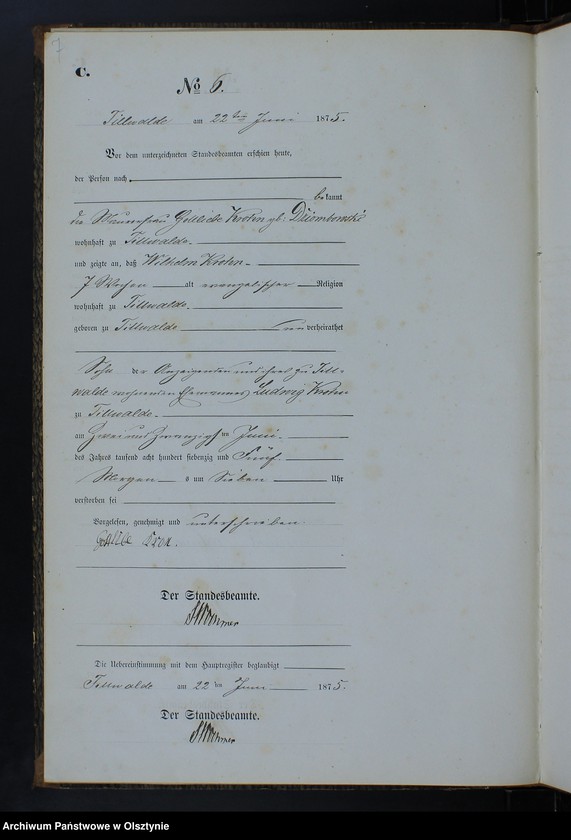 7
C.
No 6.
Tillwalde am 22ten Juni 1875.
Vor dem unterzeichneten Standesbeamten erschien heute,
der Person nach
bekannt
die Gottliebe Krohn geb.
wohnhaft zu Tillwalde
und zeigte an, daß Wilhelm Krohn
7 Wochen alt evangelischer Religion
wohnhaft zu Tillwalde
geboren zu Tillwalde unverheirathet
Sohn der Anzeigenden und ihres zu Till-
walde wohnenden Ehemannes Ludwig Krohn
zu Tillwalde
am zwei und zwanzigsten Juni
des Jahres tausend acht hundert siebenzig und Fünf
Morgens um Sieben Uhr
verstorben sei
Vorgelesen, genehmigt und unterschrieben
Der Standesbeamte.
Die Uebereinstimmung mit dem Hauptregister beglaubigt
Tillwalde am 22ten Juni 1875.
Der Standesbeamte.
Archiwum Państwowe w Olsztynie